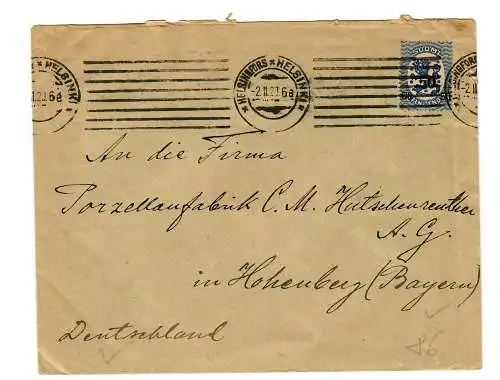 HELSINGFORS * HELSINKI *
-2.II.21 6e
SUOMI
An die Firma
Porzellanfabrik C. M. Hutschenreuther
A. G.
in Hohenberg (Bayern)
Deutschland
86